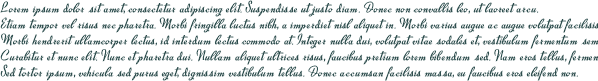 Lorem ipsum dolor sit amet, consectetur adipiscing elit. Suspendisse ut justo diam. Donec non convallis leo, ut laoreet arcu.
Etiam tempor vel risus nec pharetra. Morbi fringilla luctus nibh, a imperdiet nisl aliquet in. Morbi varius augue ac augue volutpat facilisis
Morbi hendrerit ullamcorper lectus, id interdum lectus commodo at. Integer nulla dui, volutpat vitae sodales et, vestibulum fermentum sem
Curabitur et nunc elit. Nunc et pharetra dui. Nullam aliquet ultrices risus, faucibus pretium lorem bibendum sed. Nam eros tellus, fermen
Sed tortor ipsum, vehicula sed purus eget, dignissim vestibulum tellus. Donec accumsan facilisis massa, eu faucibus eros eleifend non.